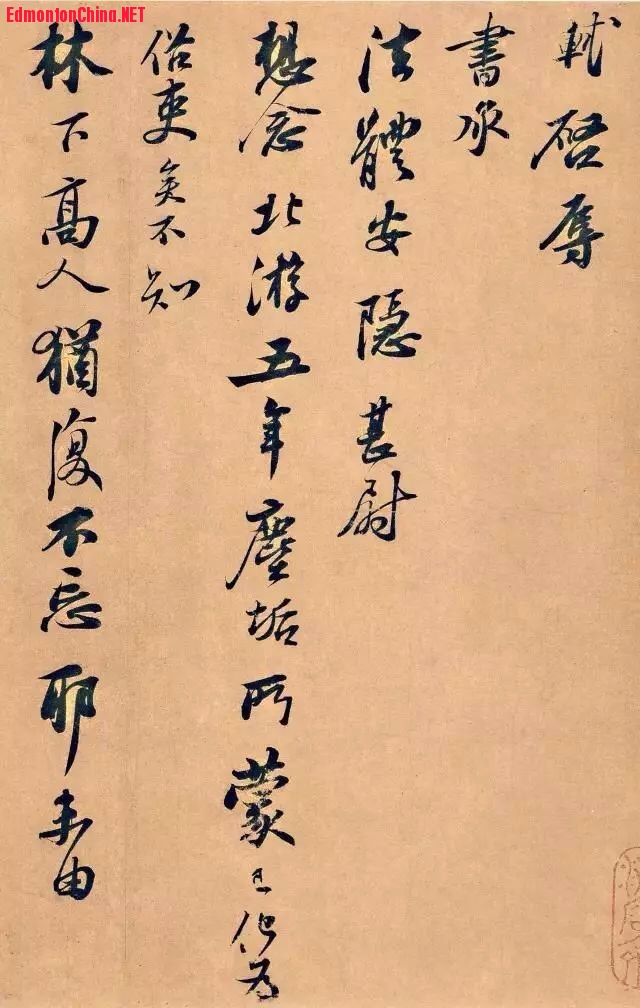 EdmontonChina.NET
軾啓辱
書承
法體安隱甚尉
想念北游五年塵垢所蒙已化為
俗吏矣不知
林下高人猶復不忘耶未由